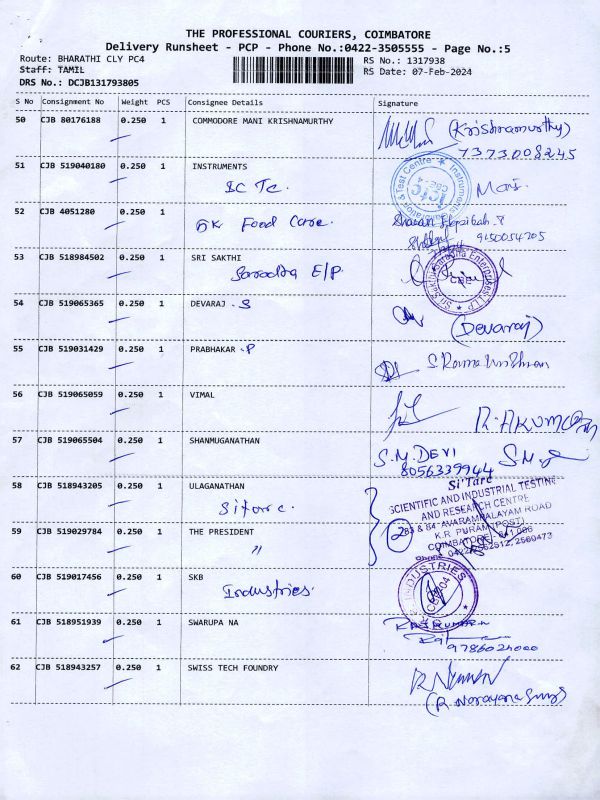 THE PROFESSIONAL COURIERS, COIMBATORE
Delivery Runsheet - PCP - Phone No.:0422-3505555 - Page No.:5
Route: BHARATHI CLY PC4
Staff: TAMIL
DRS No.: DCJB131793805
RS No.: 1317938
RS Date: 07-Feb-2024
S No Consignment No Weight PCS Consignee Details Signature
50 CJB 80176188 0.250 1 COMMODORE MANI KRISHNAMURTHY
(Krishnamurthy)
7373008245
51 CJB 519040180 0.250 1 INSTRUMENTS
IC Tc.
Instruments Calibration & Test Centre
ictc
52 CJB 4051280 0.250 1
Food Care.
9150054205
53 CJB 518984502 0.250 1 SRI SAKTHI
Saradha E/P.
Enterprises LLP
54 CJB 519065365 0.250 1 DEVARAJ . S
(Devaraj)
55 CJB 519031429 0.250 1 PRABHAKAR . P
56 CJB 519065059 0.250 1 VIMAL
57 CJB 519065504 0.250 1 SHANMUGANATHAN
S.M. DEVI
8056339944
58 CJB 518943205 0.250 1 ULAGANATHAN
Sitarc.
Si'Tarc
SCIENTIFIC AND INDUSTRIAL TESTING
AND RESEARCH CENTRE
& 84 AVARAMPALAYAM ROAD
K.R. PURAM (POST)
COIMBATORE
59 CJB 519029784 0.250 1 THE PRESIDENT
"
2
60 CJB 519017456 0.250 1 SKB
Industries.
INDUSTRIES
61 CJB 518951939 0.250 1 SWARUPA NA
RAJKUMAR
62 CJB 518943257 0.250 1 SWISS TECH FOUNDRY